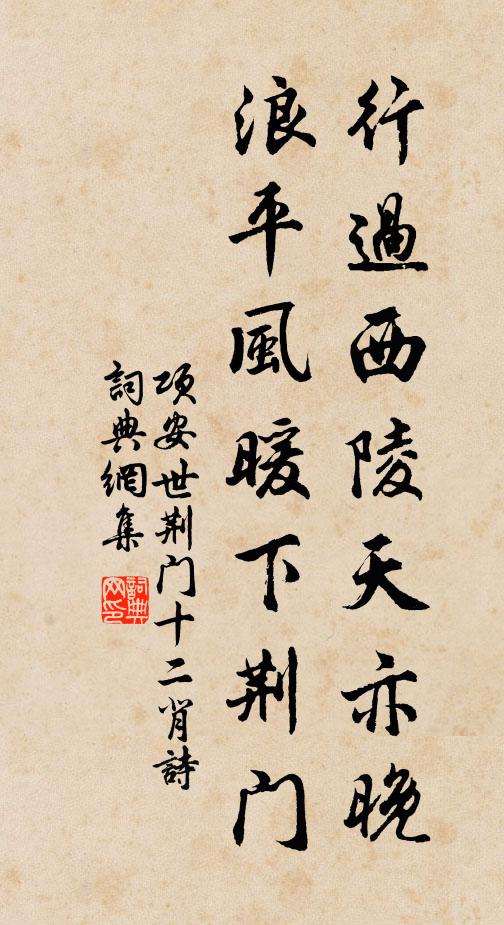 行過西陵天亦晚
浪平風暖下荆门
項安世荆门十二肖詩
詞典網集
詞典
网印